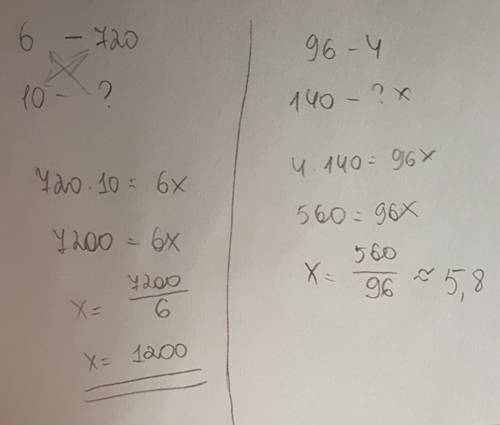 6 - 720
10 - ?
720 · 10 = 6x
7200 = 6x
x = 7200/6
x = 1200
96 - 4
140 - ? x
4 · 140 = 96x
560 = 96x
x = 560/96 ≈ 5,8